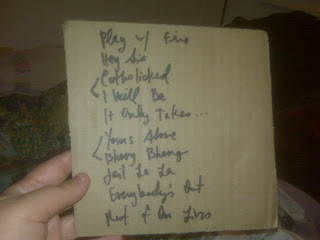 Play w/ Fire
Hey Sis
Catholicked
I Will Be
It Only Takes...
Yours Alone
Bhang Bhang
Jail La La
Everybody's Out
Rest of Our Lives